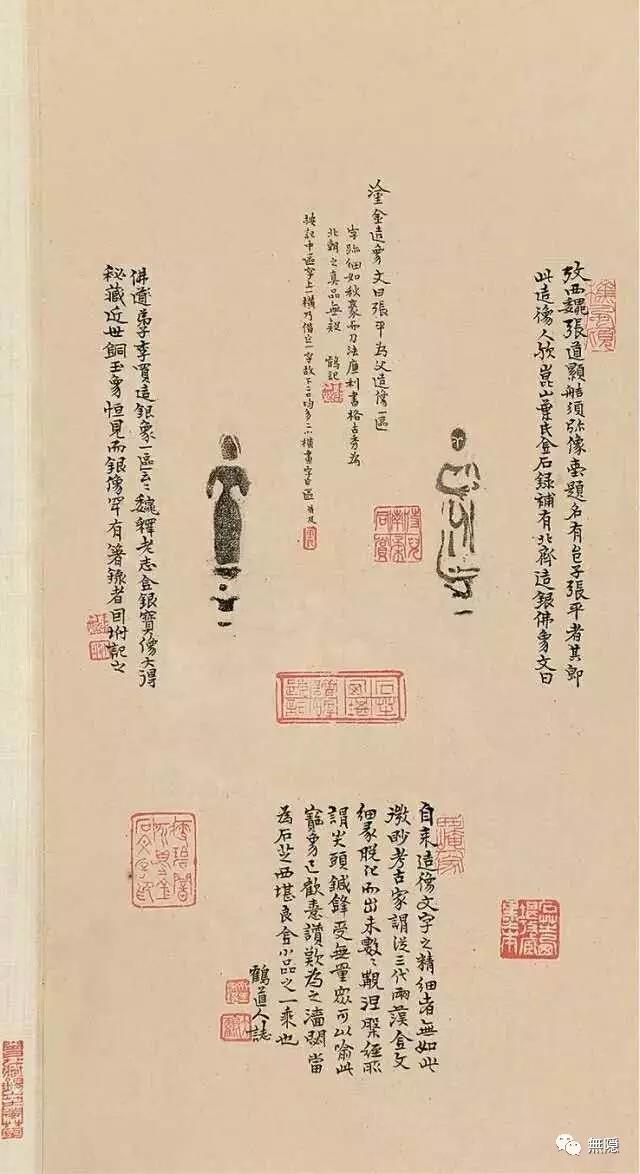 攷西魏張道顯艁須弥像題名有邑子張平者其即
此造像人歟崑山葉氏金石錄補有北齊造銀佛象文曰
佛道弟子李買造銀象一區云云魏釋老志金銀寶像大得
秘藏近世銅玉象恒見而銀像罕有箸錄者因坿記之
塗金造象文曰張平為父造像一區
字跡細如秋豪而刀法廉利書格古秀為
北朝之真品無疑 鶴記
按記中區字上一橫乃借上一字故下
自來造像文字之精細者無如此
微眇考古家謂從三代兩漢金文
細篆脫化而出未數〻覯涅槃經所
謂尖頭鍼鋒受無量眾可以喻此
寶象已歡憙讚歎為之當
為石芝西堪良金小品之一乘也
鶴道人誌
無隱